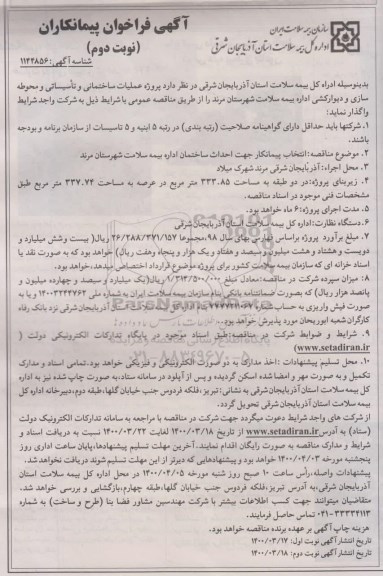 سازمان بیمه سلامت ایران
اداره کل بیمه سلامت استان آذربایجان شرقی
آگهی فراخوان پیمانکاران
(نوبت دوم)
شناسه آگهی: ۱۱۴۴۸۵۶
بدینوسیله اداره کل بیمه سلامت استان آذربایجان شرقی در نظر دارد پروژه عملیات ساختمانی و تأسیساتی و محوطه
سازی و دیوارکشی اداره بیمه سلامت شهرستان مرند را از طریق مناقصه عمومی با شرایط ذیل به شرکت واجد شرایط
واگذار نماید:
۱. شرکتها باید حداقل دارای گواهینامه صلاحیت (رتبه بندی) در رتبه ۵ ابنیه و ۵ تاسیسات از سازمان برنامه و بودجه
باشند.
۲. موضوع مناقصه: انتخاب پیمانکار جهت احداث ساختمان اداره بیمه سلامت شهرستان مرند
۳. محل اجراء: آذربایجان شرقی مرند شهرک میلاد
۴. زیربنای پروژه: در دو طبقه به مساحت ۳۳۳.۸۵ متر مربع در عرصه به مساحت ۳۳۷.۷۴ متر مربع طبق
مشخصات فنی موجود در اسناد مناقصه.
۵. مدت اجرای پروژه: ۶ ماه خواهد بود.
۶. دستگاه نظارت: اداره کل بیمه سلامت استان آذربایجان شرقی
۷. مبلغ برآورد پروژه براساس فهارس بهای سال ۹۸، مجموعا ۲۶/۲۸۸/۳۷۱/۱۵۷ ریال( بیست و شش میلیارد و
دویست و هشتاد و هشت میلیون و سیصد و هفتاد و یک هزار و پنجاه وهفت ریال) خواهد بود که به صورت نقد یا
اسناد خزانه ای که سازمان بیمه سلامت کشور برای پروژه موضوع قرارداد اختصاص میدهد، خواهد بود.
۸. میزان سپرده شرکت در مناقصه: معادل مبلغ ۱/۳۱۴/۵۰۰/۰۰۰ ریال(یک میلیارد و سیصد و چهارده میلیون و
پانصد هزار ریال) که بصورت ضمانتنامه بانکی بنام سازمان بیمه سلامت ایران به شماره ملی و یا به
صورت فیش واریزی به حساب شماره بنام آذربایجان شرقی نزد بانک رفاه
کارگران شعبه ابوریحان مورد پذیرش خواهد بود.
۹. شرایط و ضوابط شرکت در مناقصه: طبق اسناد موجود در پایگاه تدارکات الکترونیکی دولت (
www.setadiran.ir)
۱۰. محل تسلیم پیشنهادات: اخذ مدارک به دو صورت الکترونیکی و فیزیکی خواهد بود. تمامی اسناد و مدارک
تکمیل و به صورت مهر و امضا شده اسکن گردیده و پس از آپلود در سامانه ستاد، به صورت چاپ شده نیز به اداره
کل بیمه سلامت استان آذربایجان شرقی به نشانی: تبریز، فلکه فردوس جنب خیابان گلها، طبقه دوم، دبیرخانه اداره کل
بیمه سلامت استان آذربایجان شرقی تحویل گردد.
از شرکت های واجد شرایط دعوت میگردد جهت شرکت در مناقصه با مراجعه به سامانه تدارکات الکترونیک دولت
(ستاد) به آدرس www.setadiran.ir از تاریخ ۱۴۰۰/۰۳/۱۸ لغایت ۱۴۰۰/۰۳/۲۲ نسبت به دریافت اسناد و
شرایط و مدارک مناقصه به صورت رایگان اقدام نمایند. آخرین مهلت تسلیم پیشنهادها، پایان ساعت اداری روز
پنجشنبه مورخه ۱۴۰۰/۰۴/۰۳ خواهد بود و پیشنهادهایی که دیرتر از این مهلت تسلیم شوند دریافت نخواهد شد.
پیشنهادات واصله، رأس ساعت ۱۰ صبح روز شنبه مورخه ۱۴۰۰/۰۴/۰۵ در محل اداره کل بیمه سلامت استان
آذربایجان شرقی، به آدرس تبریز، فلکه فردوس جنب خیابان گلها، طبقه چهارم، بازگشایی و بررسی خواهد شد.
متقاضیان میتوانند جهت کسب اطلاعات بیشتر با شرکت مهندسین مشاور فضا بنا (طرح و ساخت) به شماره
۰۴۱-۳۳۳۳۴۱۱۳ تماس حاصل فرمایند.
هزینه چاپ آگهی بر عهده برنده مناقصه خواهد بود.
تاریخ انتشار آگهی نوبت اول: ۱۴۰۰/۰۳/۱۷
تاریخ انتشار آگهی نوبت دوم: ۱۴۰۰/۰۳/۱۸